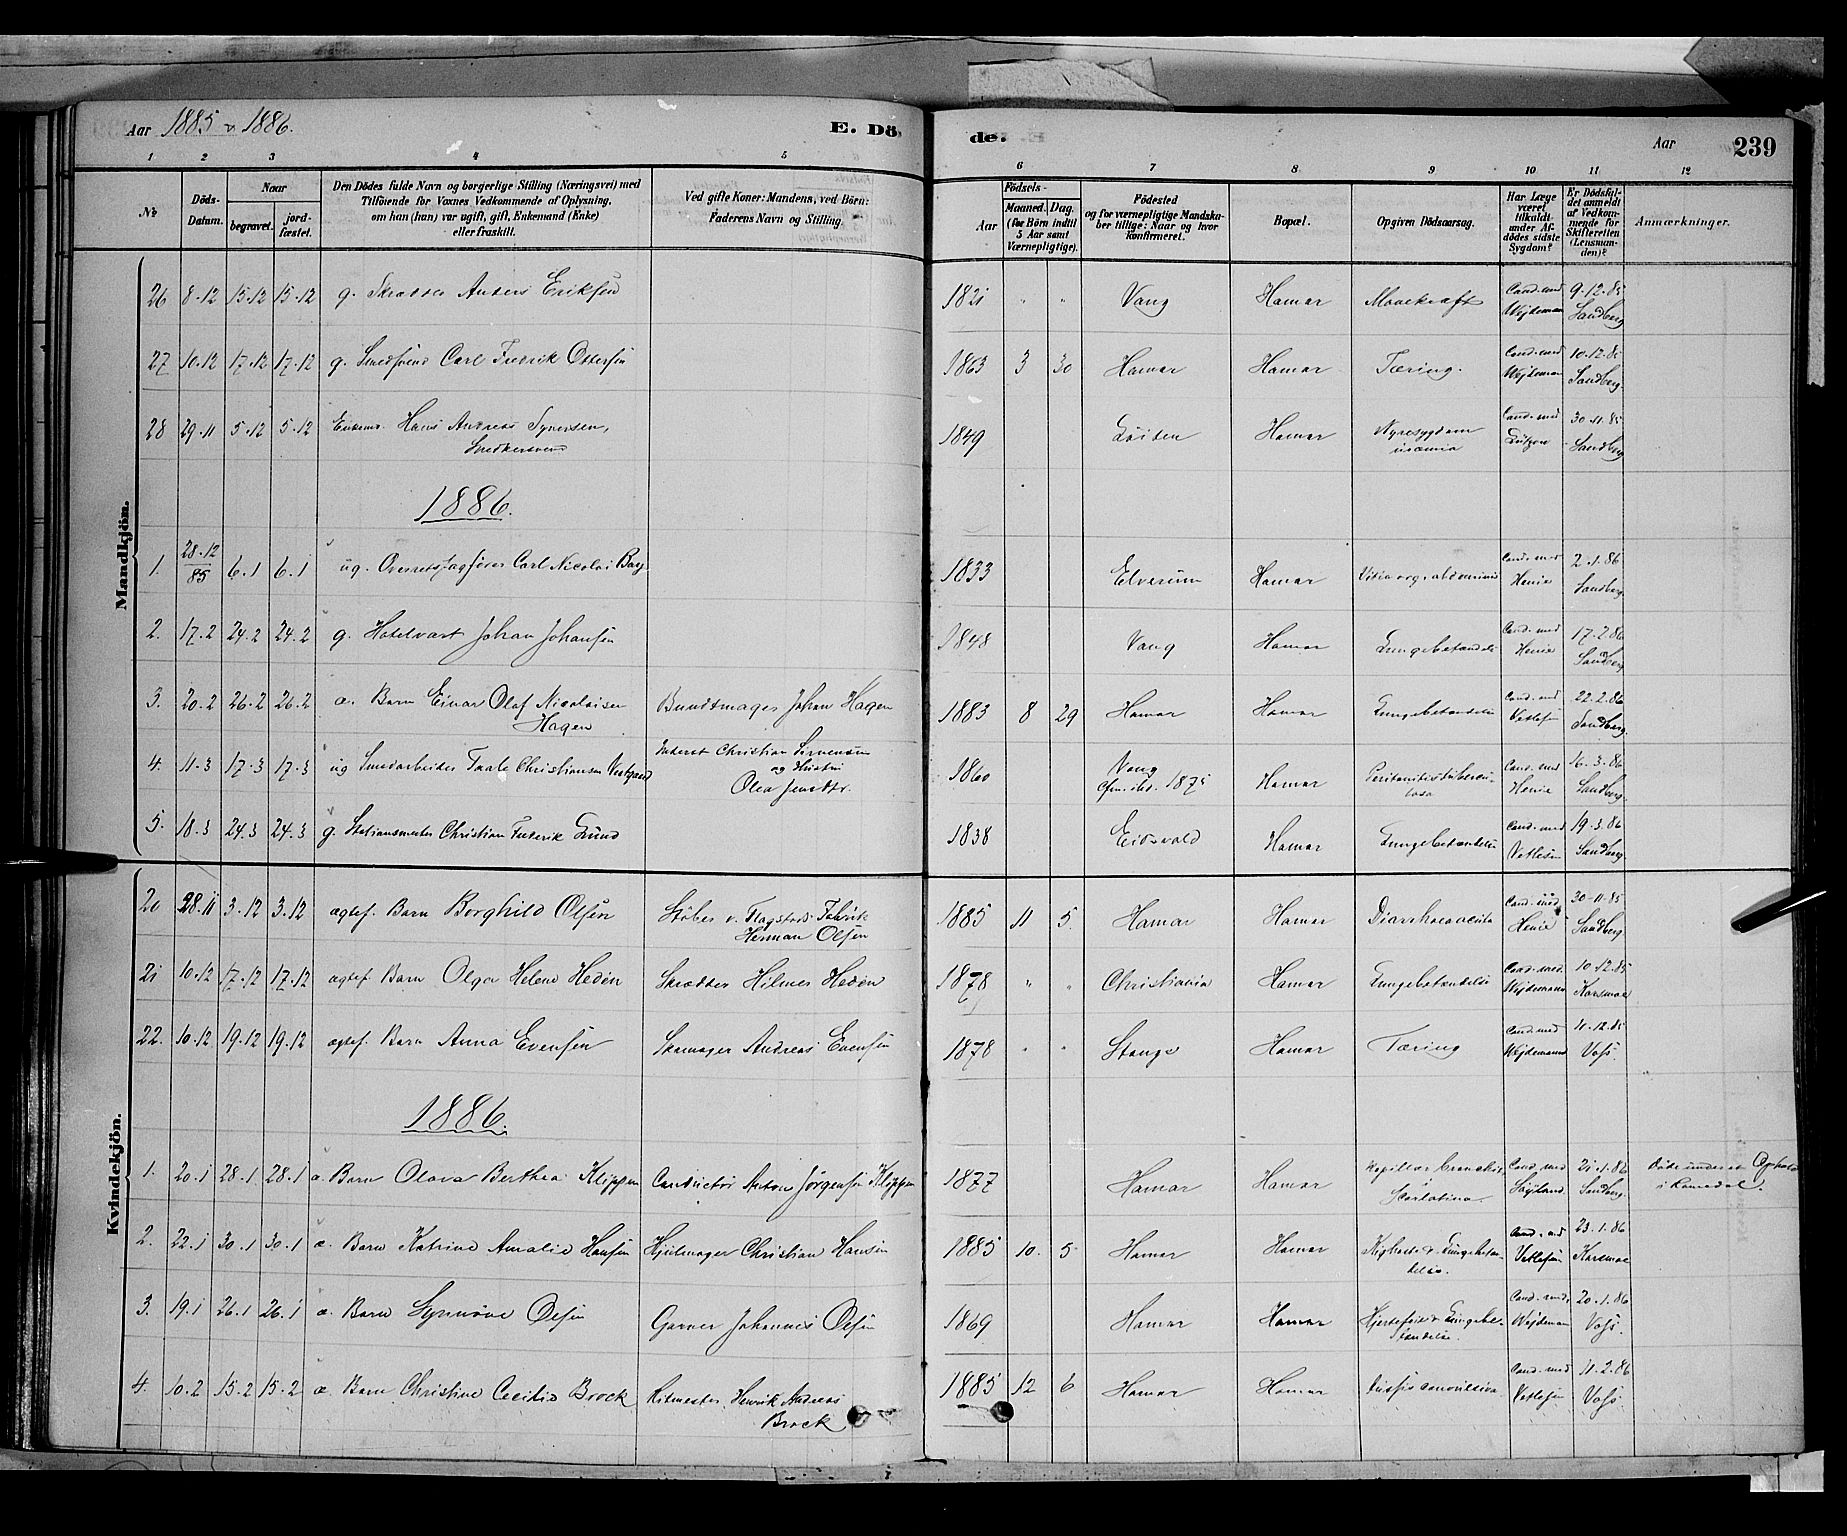 Aar 1885 & 1886.
E. Dö-
de.
Aar
239
1 2 3 4 5 6 7 8 9 10 11 12
№
Döds-Datum.
Naar
begravet.
jord-fæstet.
Den Dödes fulde Navn og borgerlige Stilling (Næringsvei) med
Tilföiende for Voxnes Vedkommende af Oplysning,
om han (hun) var ugift, gift, Enkemand (Enke)
eller fraskilt.
Ved gifte Koner: Mandens, ved Börn:
Faderens Navn og Stilling.
Födsels-
Aar
Maaned. Dag.
(for Börn indtil
5 Aar samt
Værnepligtige).
Födested
og for værnepligtige Mandska-
ber tillige: Naar og hvor
konfirmeret.
Bopæl.
Opgiven Dödsaarsag.
Har Læge
været
tilkaldt
under Af-
dödes sidste
Sygdom?
Er Dödsfal-
det anmeldt
af Vedkom-
mende for
Skifteretten
(Lensman-
den)?
Anmærkninger.
Mandkjön.
26 8.12 15.12 15.12 g. Skrædder Anders Eriksen 1821 " " Vang Hamar Mavekræft Cand. med Wejdeman 9.12.85 Sandberg
27 10.12 17.12 17.12 g. Smedsvend Carl Fredrik Ottersen 1863 3 30 Hamar Hamar Tæring. Cand. med Wejdeman 10.12.85 Sandberg.
28 29.11 5.12 5.12 Enkem. Hans Andreas Syversen, Snedkersvend 1849 Löiten Hamar Nyresygdom uræmia Cand. med Lützow 30.11.85 Sandberg
1886.
1. 28.12/85 6.1 6.1 ug. Overretssagförer Carl Nicolai Bay 1833 Elverum Hamar Cand. med Henie 2.1.86 Sandberg
2. 17.2 24.2 24.2 g. Hotelvært Johan Johansen 1848 Vang Hamar Lungebetændelse Cand. med Henie 17.2.86 Sandberg
3. 20.2 26.2 26.2 æ. Barn Einar Olaf Nicolaisen Hagen Bundtmager Johan Hagen 1883 8 29 Hamar Hamar Lungebetændelse Cand. med Vetlesen 22.2.86 Sandberg
4. 11.3 17.3 17.3 ug Smedarbeider Taale Christiansen Vestgaard Inderst Christian Simensen og Hustru Olea Jensdtr. 1860 Vang Cfm. ibd. 1875 Hamar Peritonitis tuberculosa Cand. med Henie 16.3.86 Sandberg.
5. 18.3 24.3 24.3 g. Stationsmester Christian Frederik Lund 1838 Eidsvold Hamar Lungebetændelse Cand. med Vetlesen 19.3.86 Sandberg
Kvindekjön.
20 28.11 3.12 3.12 ægtef. Barn Borghild Olsen Stöber v. Flagstads Fabrik Herman Olsen 1885 11 5. Hamar Hamar Diarrhoea acuta Cand. med Henie 30.11.85 Sandberg
21 10.12 17.12 17.12 ægtef. Barn Olga Helene Hedén Skrædder Hilmer Hedén 1878 " " Christiania Hamar Lungebetændelse Cand. med. Wejdemann 10.12.85 Korsmoe
22. 10.12 19.12 19.12 ægtef. Barn Anna Evensen Skomager Andreas Evensen 1878 " " Stange Hamar Tæring Cand. med Wejdemann 11.12.85 Voss.
1886.
1. 20.1 28.1 28.1 æ. Barn Olava Berthea Klippen Conductör Anton Jörgensen Klippen 1877 Hamar Hamar Kapillær bronchit Scarlatina Cand. med 21.1.86 Sandberg. Döde under et Ophold i Romedal.
2. 22.1 30.1 30.1 æ. Barn Katrine Amalie Hansen Hjulmager Christian Hansen 1885 10. 5 Hamar Hamar Kighoste & Lungebetændelse. Cand. med Vetlesen 23.1.86 Korsmoe
3. 19.1 26.1 26.1 æ. Barn Synnöve Olsen Garver Johannes Olsen 1869 Hamar Hamar Hjertefeil & Lungebetændelse. Cand. med. Wejdeman 20.1.86 Voss.
4. 10.2 15.2 15.2 æ. Barn Christine Cecilie Brock Ritmester Henrik Andreas Brock 1885 12 6 Hamar Hamar Tussis convulsiva Cand. med Vetlesen 11.2.86 Voss.